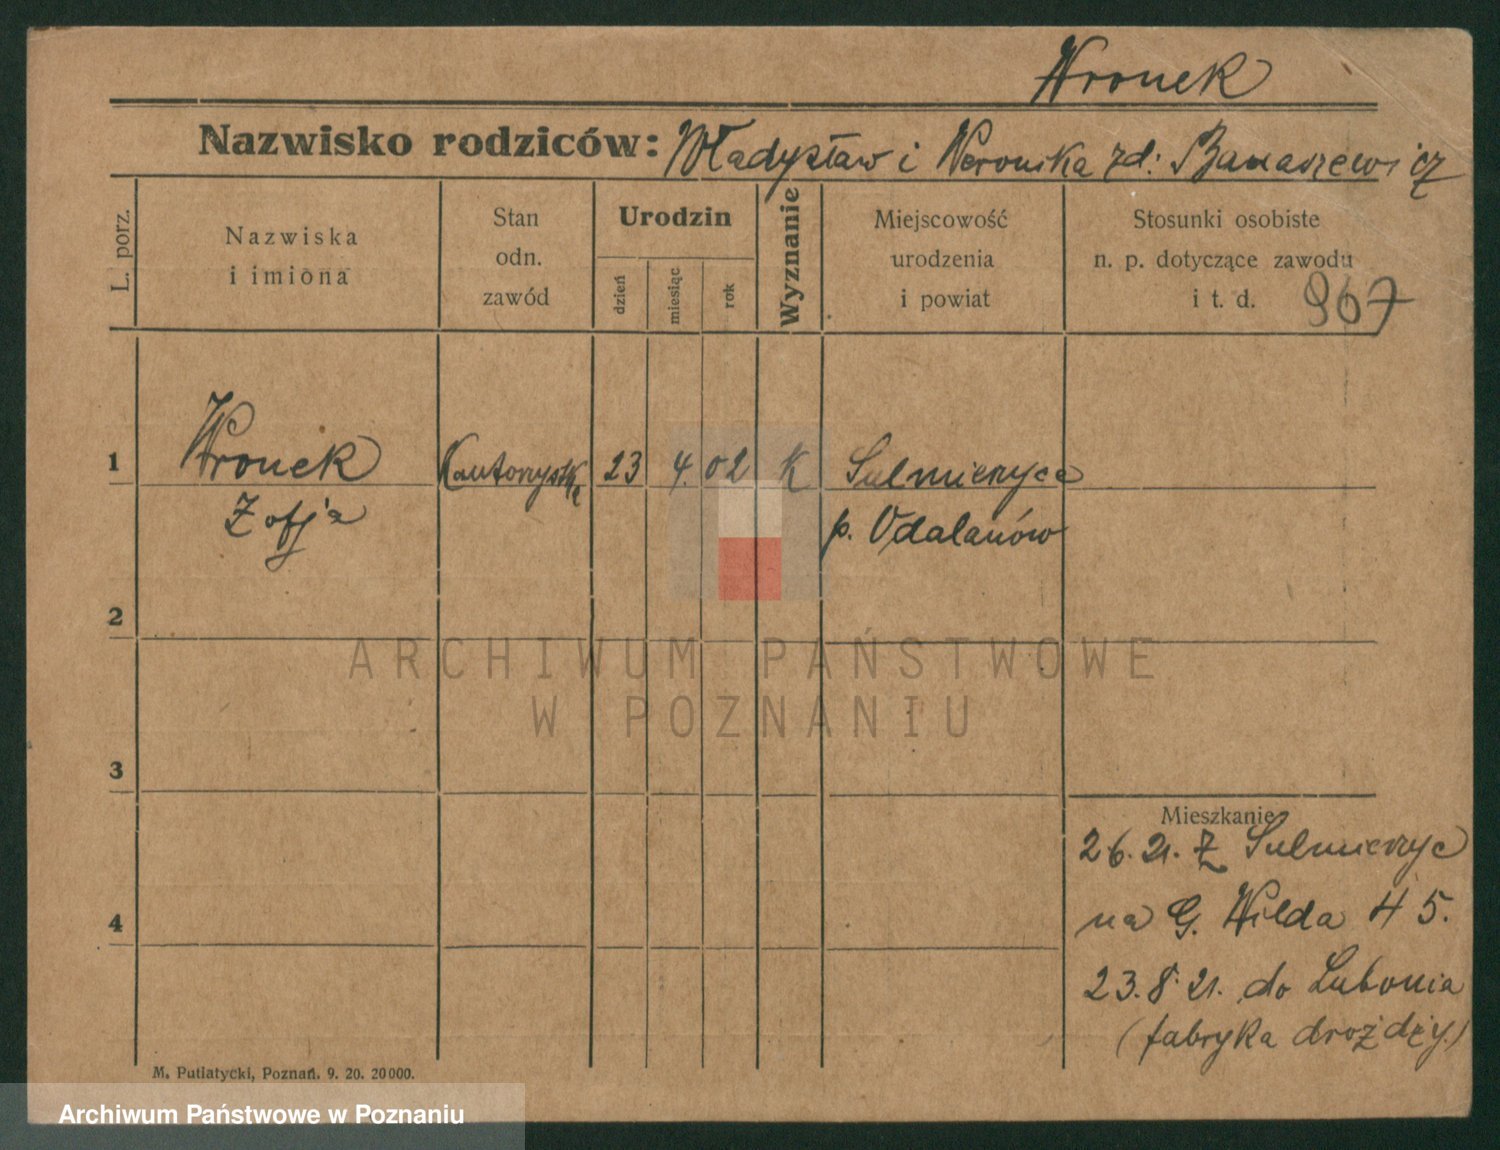 Wronek
Nazwisko rodziców: Władysław i Weronika zd: Banaszewicz
L. porz.
Nazwiska
i imiona
Stan
odn.
zawód
Urodzin
dzień
miesiąc
rok
Wyznanie
Miejscowość
urodzenia
i powiat
Stosunki osobiste
n. p. dotyczące zawodu
i t. d. 967
1 Wronek Kantorzystka 23 4. 02 K Sulmierzyce
Zofja p. Odalanów
2
ARCHIWUM PAŃSTWOWE
W POZNANIU
3
Mieszkanie
26. 21. Z Sulmierzyc
4
na G. Wilda 45.
23. 8. 21. do Lubonia
(fabryka drożdży.)
M. Putiatycki, Poznań. 9. 20. 20000.
Archiwum Państwowe w Poznaniu